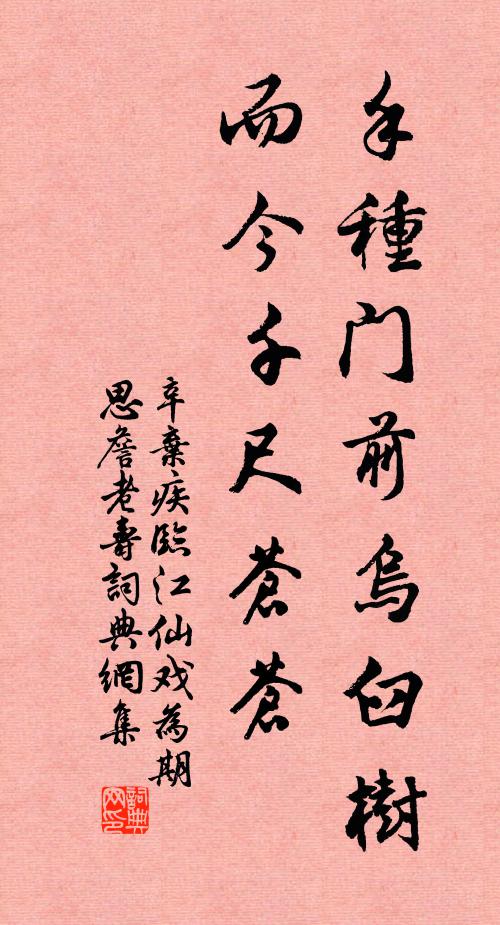 手種門前烏臼樹
而今千尺蒼蒼
辛棄疾臨江仙戏為期
思詹老壽詞典網集
詞典网印